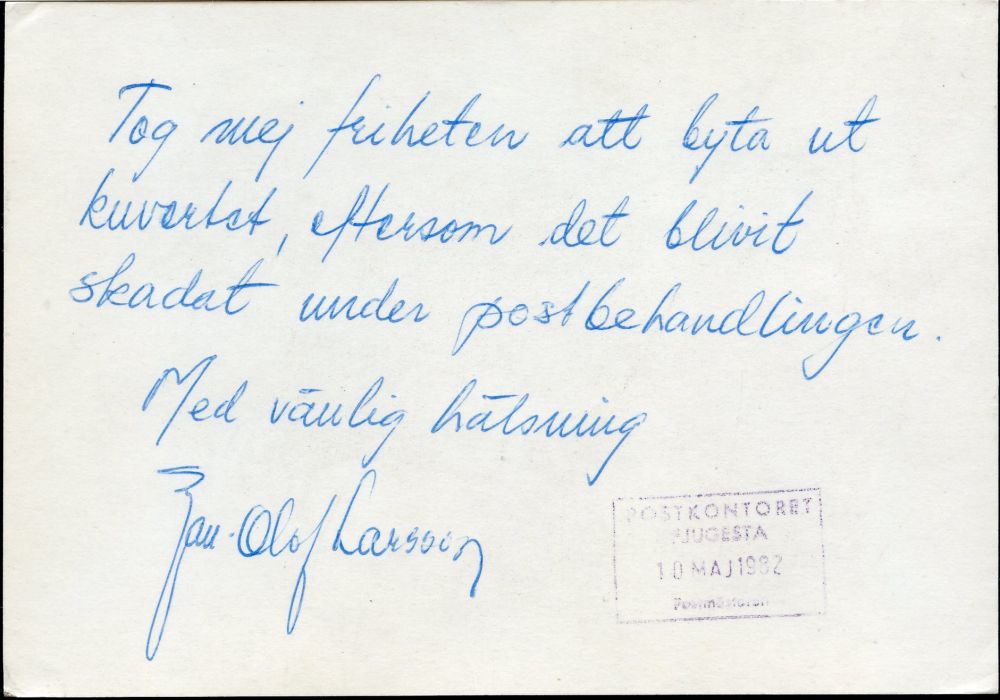 Tog mej friheten att byta ut
kuvertet, eftersom det blivit
skadat under postbehandlingen.
Med vänlig hälsning
Jan-Olof Larsson
POSTKONTORET
FJUGESTA
10 MAJ 1982
Postmästaren